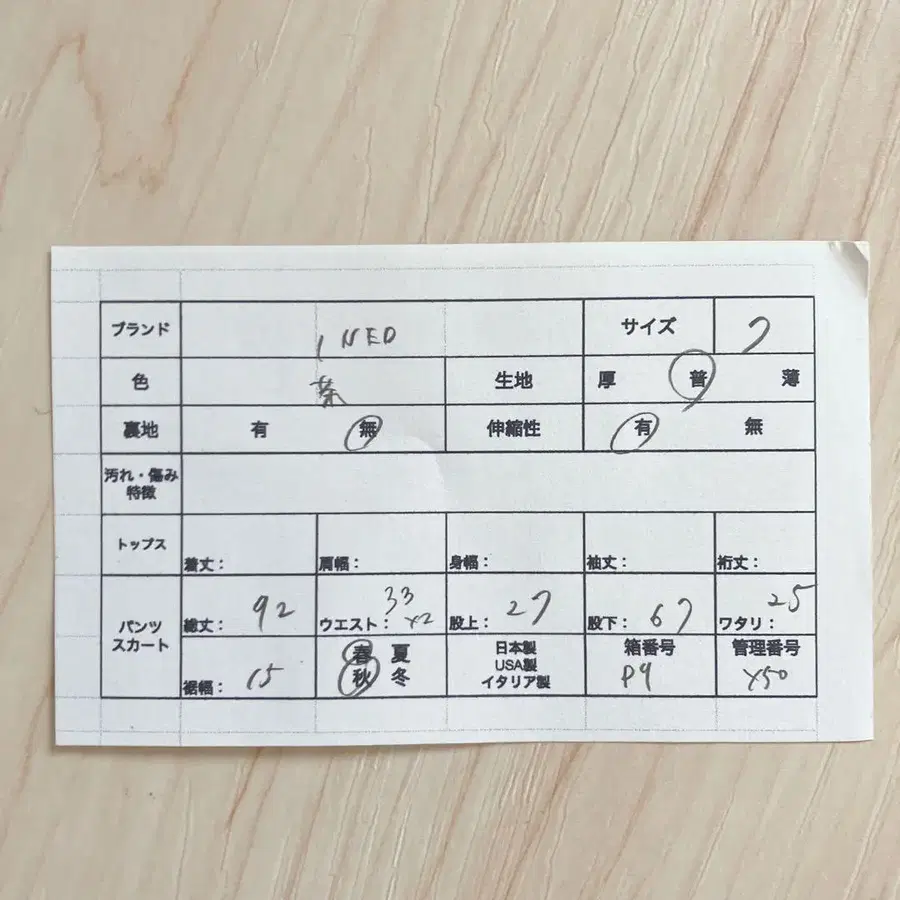 ブランド INED サイズ 7
色 茶 生地 厚 普 薄
裏地 有 無 伸縮性 有 無
汚れ・傷み
特徴
トップス 着丈: 肩幅: 身幅: 袖丈: 裄丈:
パンツ
スカート
総丈: 92 ウエスト: 33 ×2 股上: 27 股下: 67 ワタリ: 25
裾幅: 15
春 夏
秋 冬
日本製
USA製
イタリア製
箱番号
P9
管理番号
Y50